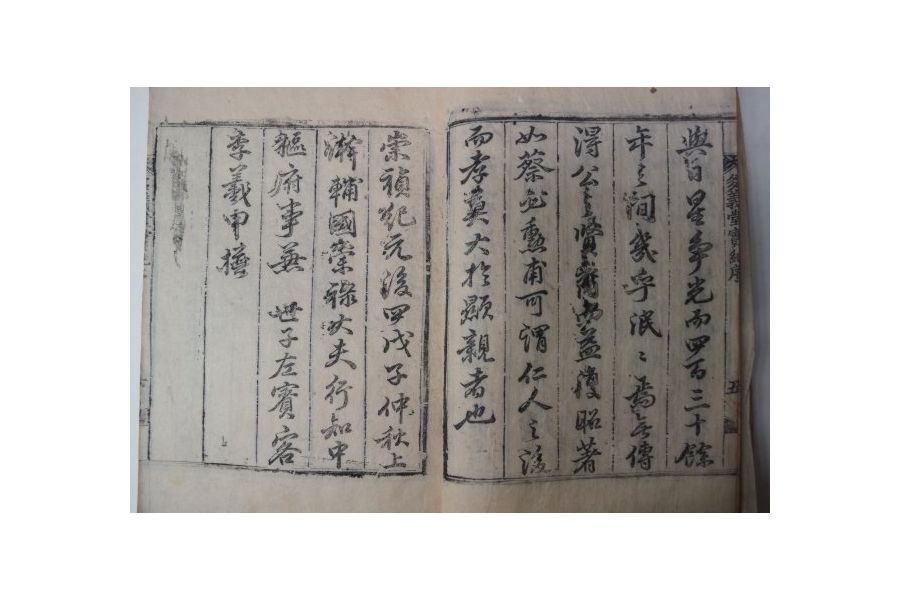 多義堂實紀序
五
與日星爭光而四百三十餘
年之間幾乎泯〻焉無傳
得公之賢裔而益復昭著
如蔡必勳甫可謂仁人之後
而孝莫大於顯親者也
崇禎紀元後四戊子仲秋上
澣輔國崇祿大夫行知中
樞府事兼 世子左賓客
李羲甲撰